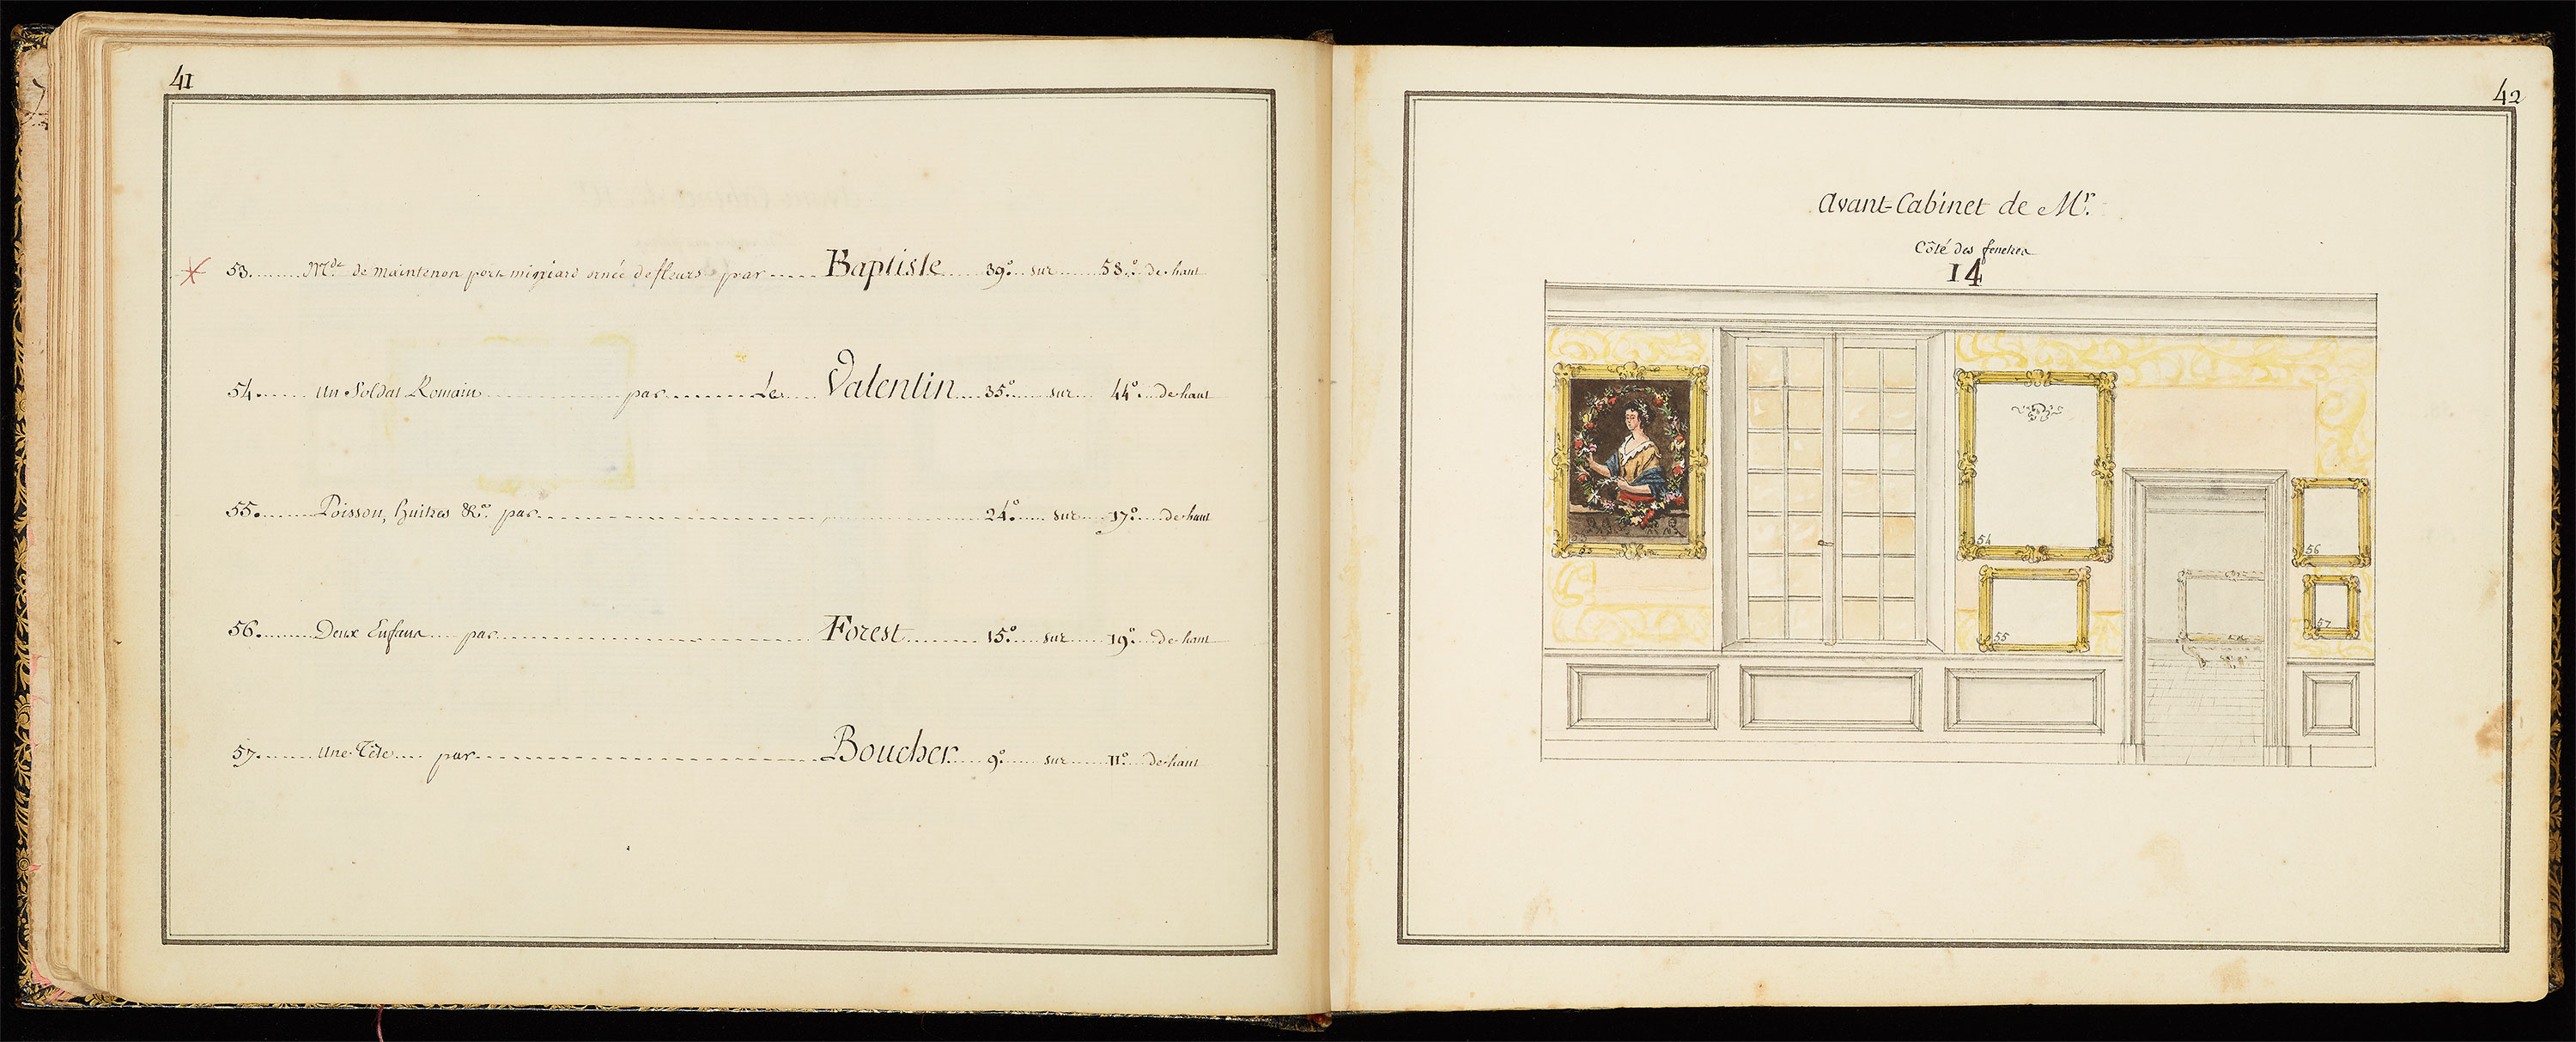 41
53. Mde. de maintenon par migniard ornée de fleurs par Baptiste 39° sur 58° de haut
54. un Soldat Romain par Le Valentin 35° sur 44° de haut
55. Poisson, huitres &c. par 24° sur 17° de haut
56. Deux Enfans par Forest 15° sur 19° de haut
57. une Tête par Boucher 9° sur 11° de haut
42
Avant-Cabinet de Mr.
Côté des fenetres
14
53
54
55
56
57